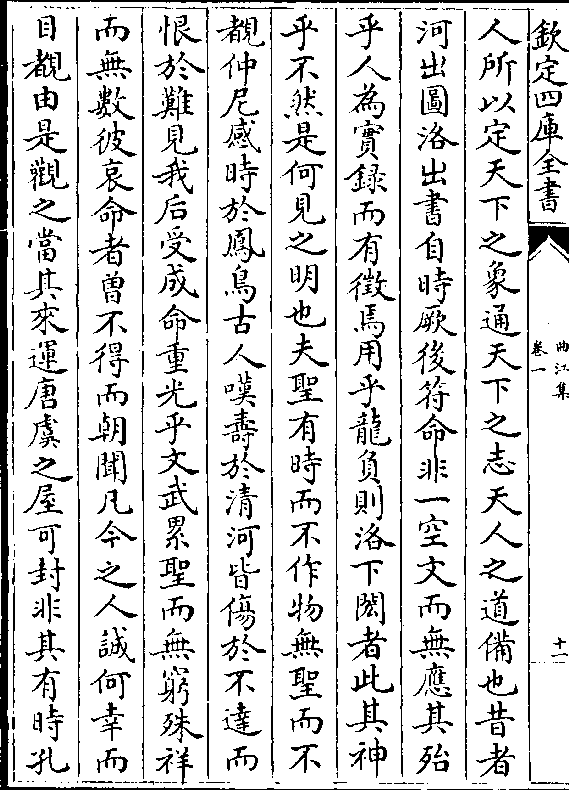 欽定四庫全書
曲江集
卷一
十一
人所以定天下之象通天下之志天人之道備也昔者
河出圖洛出書自時厥後符命非一空文而無應其殆
乎人為實録而有徵焉用乎龍負則洛下閎者此其神
乎不然是何見之明也夫聖有時而不作物無聖而不
覩仲尼感時於鳳鳥古人嘆壽於清河皆傷於不達而
恨於難見我后受成命重光乎文武累聖而無窮殊祥
而無數彼哀命者曾不得而朝聞凡今之人誠何幸而
目覩由是觀之當其來運唐虞之屋可封非其有時孔